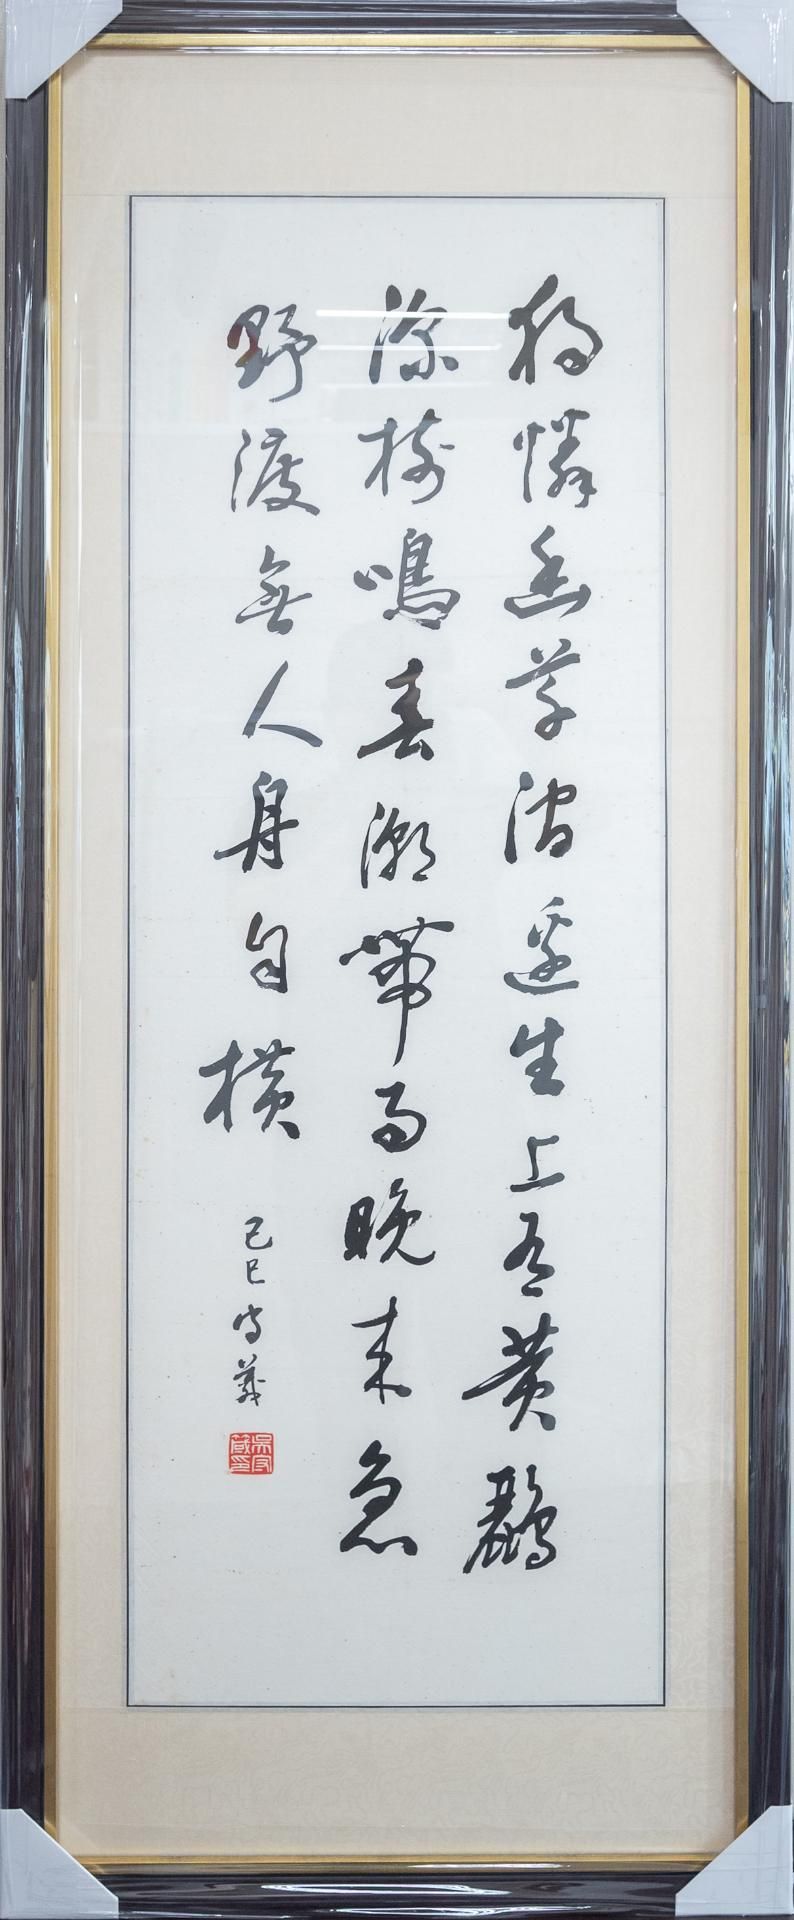 獨憐幽草澗邊生上有黃鸝
深樹鳴春潮帶雨晚來急
野渡無人舟自橫
己巳守義